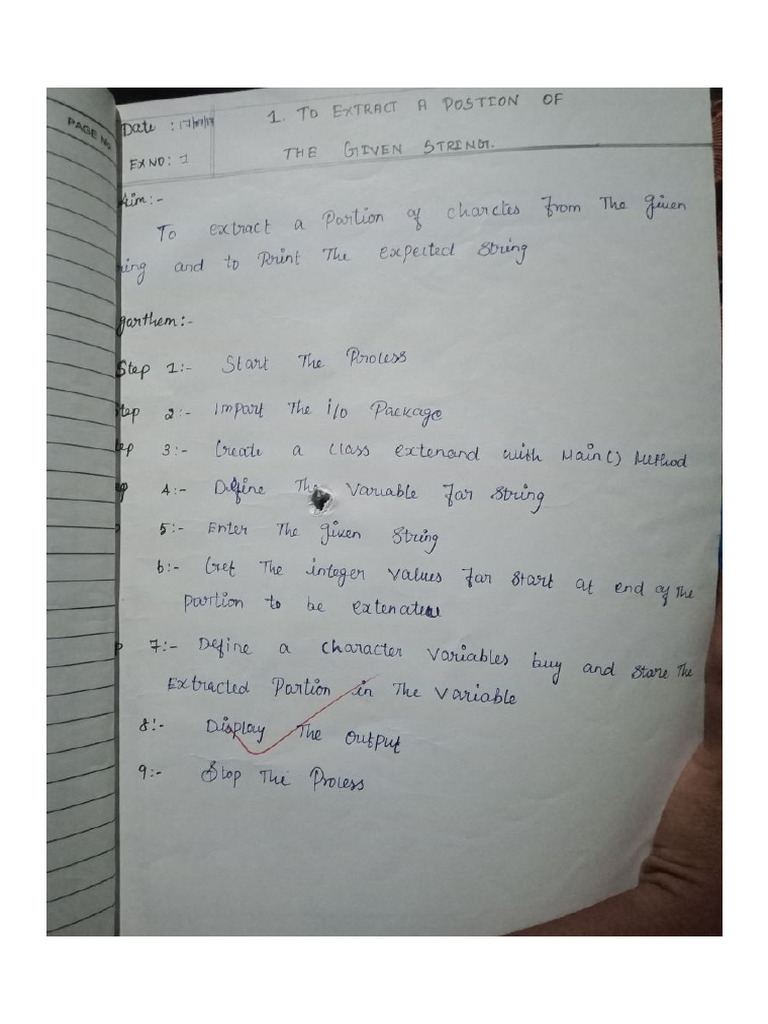 PAGE No.
Date :
1. TO EXTRACT A POSTION OF
EXNO: 1
THE GIVEN STRING.
Aim:-
To extract a Partion of charctes from The given
ring and to Print The expected string
garthem:-
Step 1:- Start The Process
tep 2:- Impart The i/o Package
tep 3:- Create a class extenand with Main() Method
4:- Define The Variable far string
5:- Enter The given string
6:- Get The integer values far start at end of The
partion to be
p 7:- Define a character variables buy and stare The
Extracted Partion in The variable
8:- Display The output
9:- Stop The Process